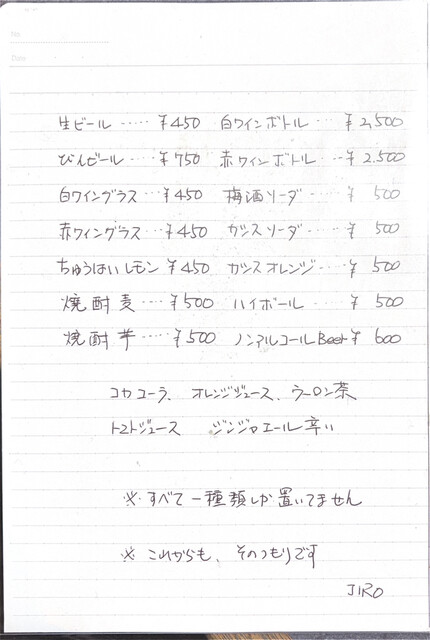 No.
Date
生ビール ····· ¥450 白ワインボトル ··· ¥2,500
びんビール ···· ¥750 赤ワインボトル ·· ¥2.500
白ワイングラス ··· ¥450 梅酒ソーダ ····· ¥ 500
赤ワイングラス ··· ¥450 カシスソーダ ···· ¥ 500
ちゅうはいレモン ¥450 カシスオレンジ ···· ¥ 500
焼酎麦 ···· ¥500 ハイボール ···· ¥ 500
焼酎芋 ····· ¥500 ノンアルコールBeer ¥ 600
コカコーラ、オレンジジュース、ウーロン茶
トマトジュース ジンジャエール辛い
※ すべて一種類しか置いてません
※ これからも、そのつもりです
JIRO